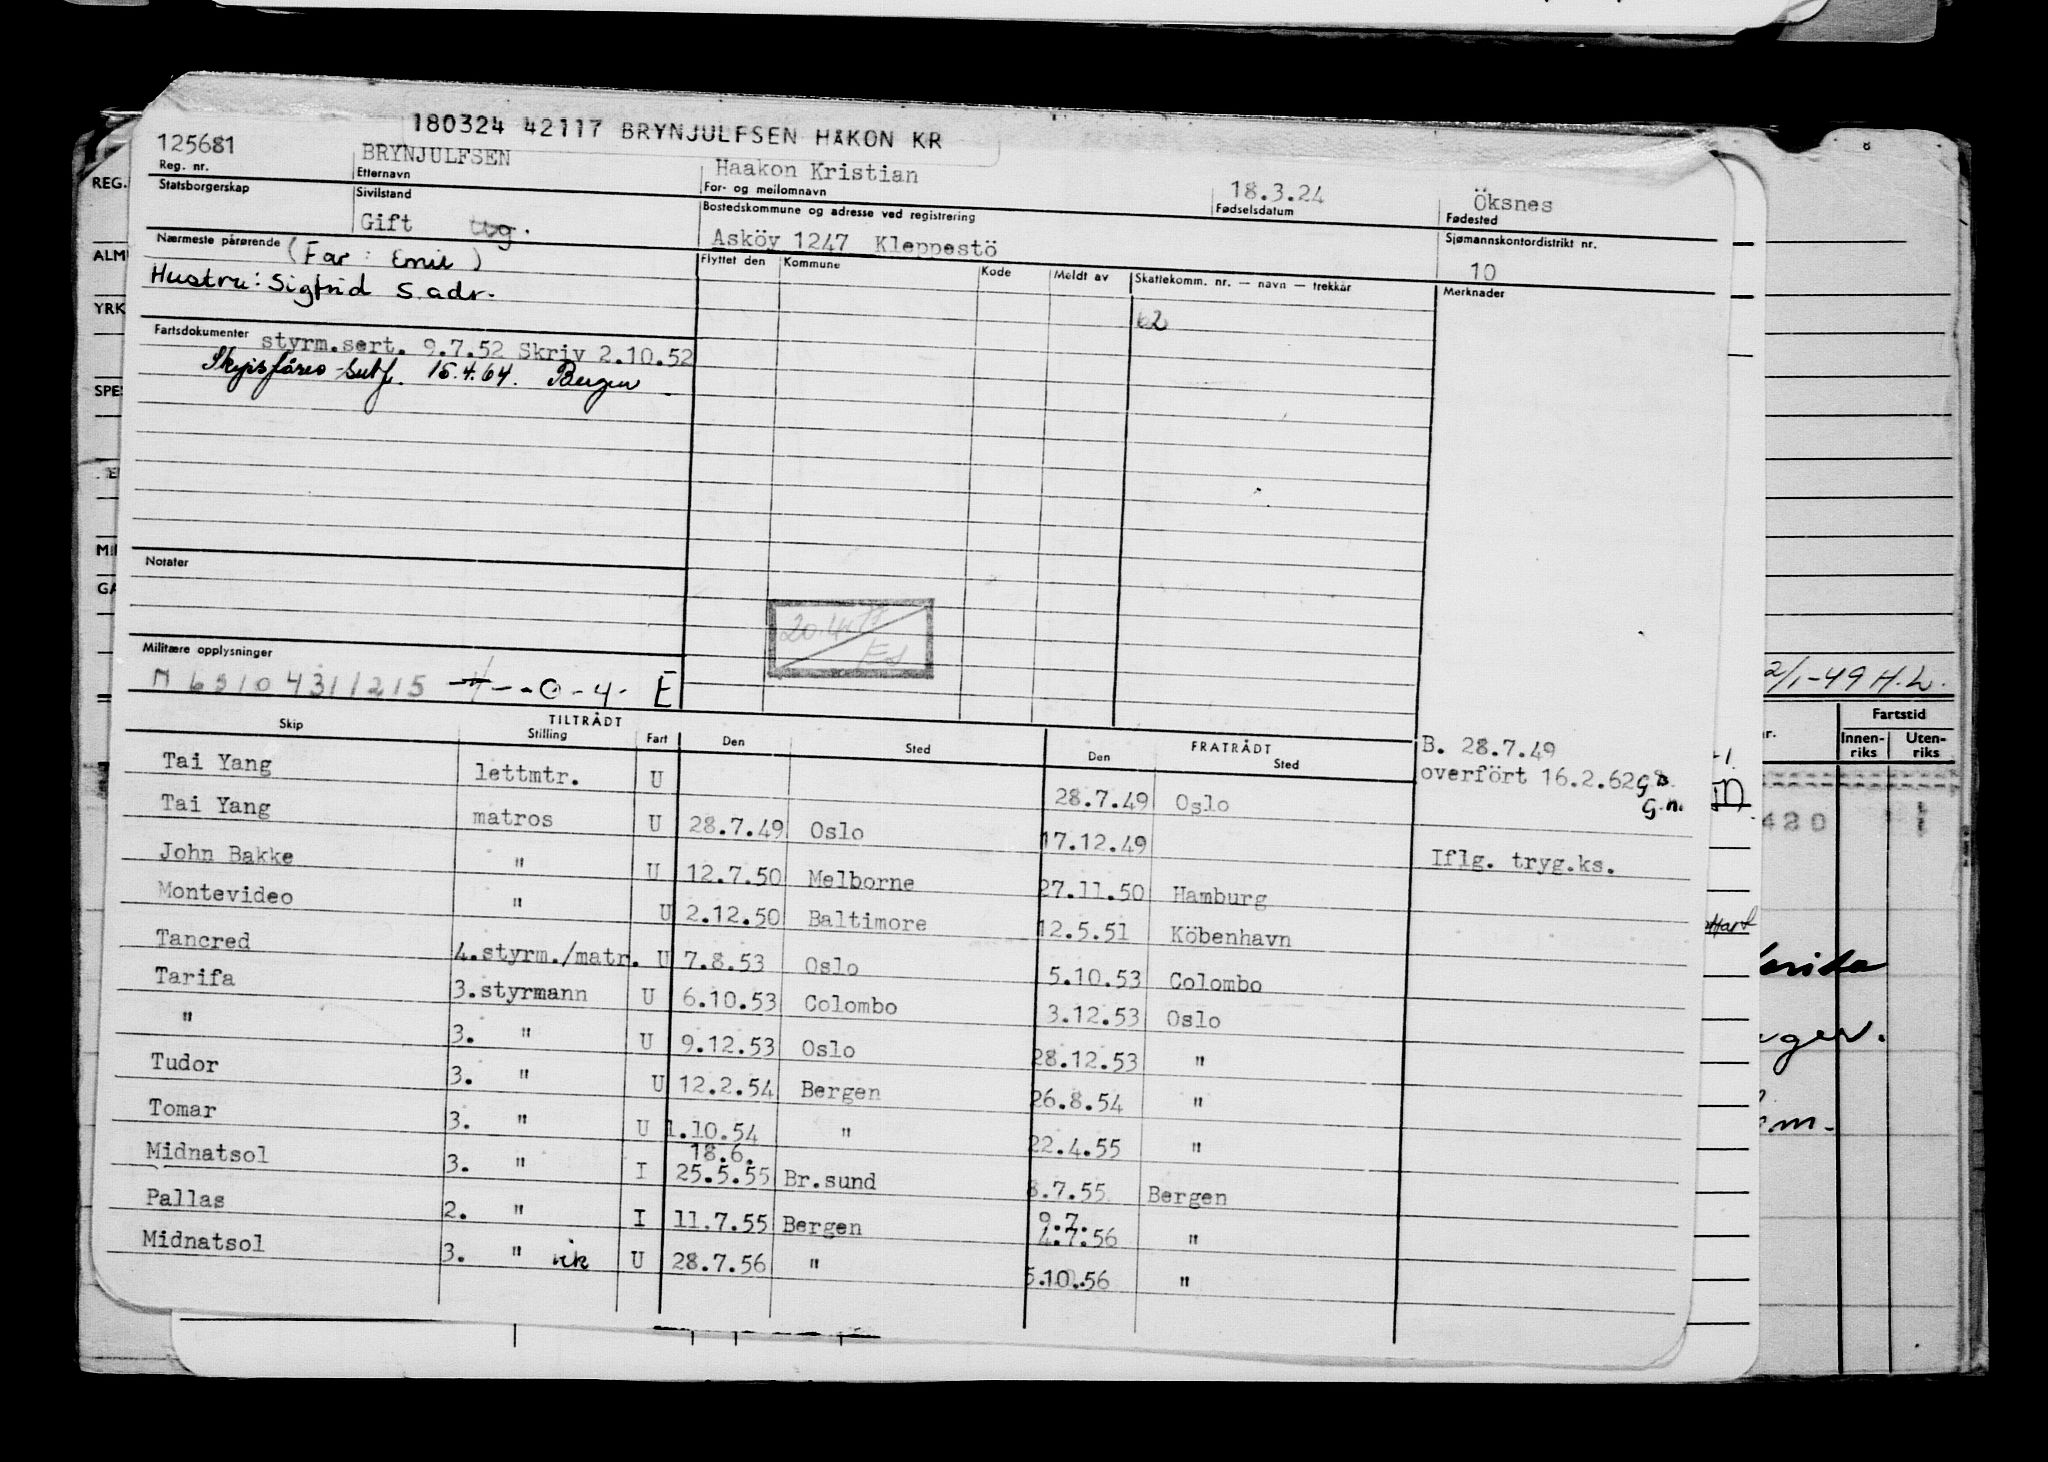 180324 42117 BRYNJULFSEN HAKON KR
125681 BRYNJULFSEN Haakon Kristian 18.3.24 Öksnes
Reg. nr. Etternavn For- og mellomnavn Fødselsdatum Fødested
Statsborgerskap Sivilstand Bostedskommune og adresse ved registrering Sjømannskontordistrikt nr.
Gift ug. Asköy 1247 Kleppestö 10
Nærmeste pårørende (Far: Emil) Flyttet den Kommune Kode Meldt av Skattekomm. nr. — navn — trekkår Merknader
Hustru: Sigfrid s. adr.
62
Fartsdokumenter styrm.sert. 9.7.52 Skriv 2.10.52
Skipsförer-sertf. 15.4.64. Bergen
Notater
Militære opplysninger
M 6510431/215 -4--0-4- E
TILTRÅDT FRATRÅDT
Skip Stilling Fart Den Sted Den Sted
B. 28.7.49
overfört 16.2.62
G.n.
Tai Yang lettmtr. U 28.7.49 Oslo
Tai Yang matros U 28.7.49 Oslo 17.12.49 Iflg. tryg.ks.
John Bakke " U 12.7.50 Melborne 27.11.50 Hamburg
Montevideo " U 2.12.50 Baltimore 12.5.51 Köbenhavn
Tancred 4.styrm./matr. U 7.8.53 Oslo 5.10.53 Colombo
Tarifa 3.styrmann U 6.10.53 Colombo 3.12.53 Oslo
" 3. " U 9.12.53 Oslo 28.12.53 "
Tudor 3. " U 12.2.54 Bergen 26.8.54 "
Tomar 3. " U 1.10.54 " 22.4.55 "
18.6.
Midnatsol 3. " I 25.5.55 Br.sund 8.7.55 Bergen
9.7.
Pallas 2. " I 11.7.55 Bergen 4.7.56 "
Midnatsol 3. " vik U 28.7.56 " 5.10.56 "
REG.
ALM
YRK
SPE
MI
GA
8
2/1-49 H.L.
Fartstid
Innen-
riks
Uten-
riks
420